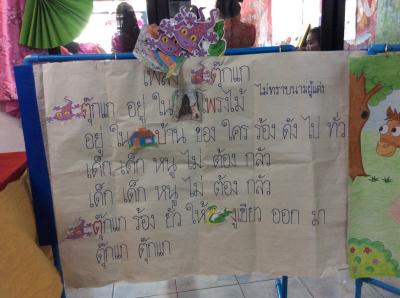 เพลง ตุ๊กแก
ไม่ทราบนามผู้แต่ง
ตุ๊กแก อยู่ ใน โพรงไม้
อยู่ ใน บ้าน ของ ใคร ร้อง ดัง ไป ทั่ว
เด็ก เด็ก หนู ไม่ ต้อง กลัว
เด็ก เด็ก หนู ไม่ ต้อง กลัว
ตุ๊กแก ร้อง ยั่ว ให้ งูเขียว ออก มา
ตุ๊กแก ตุ๊กแก